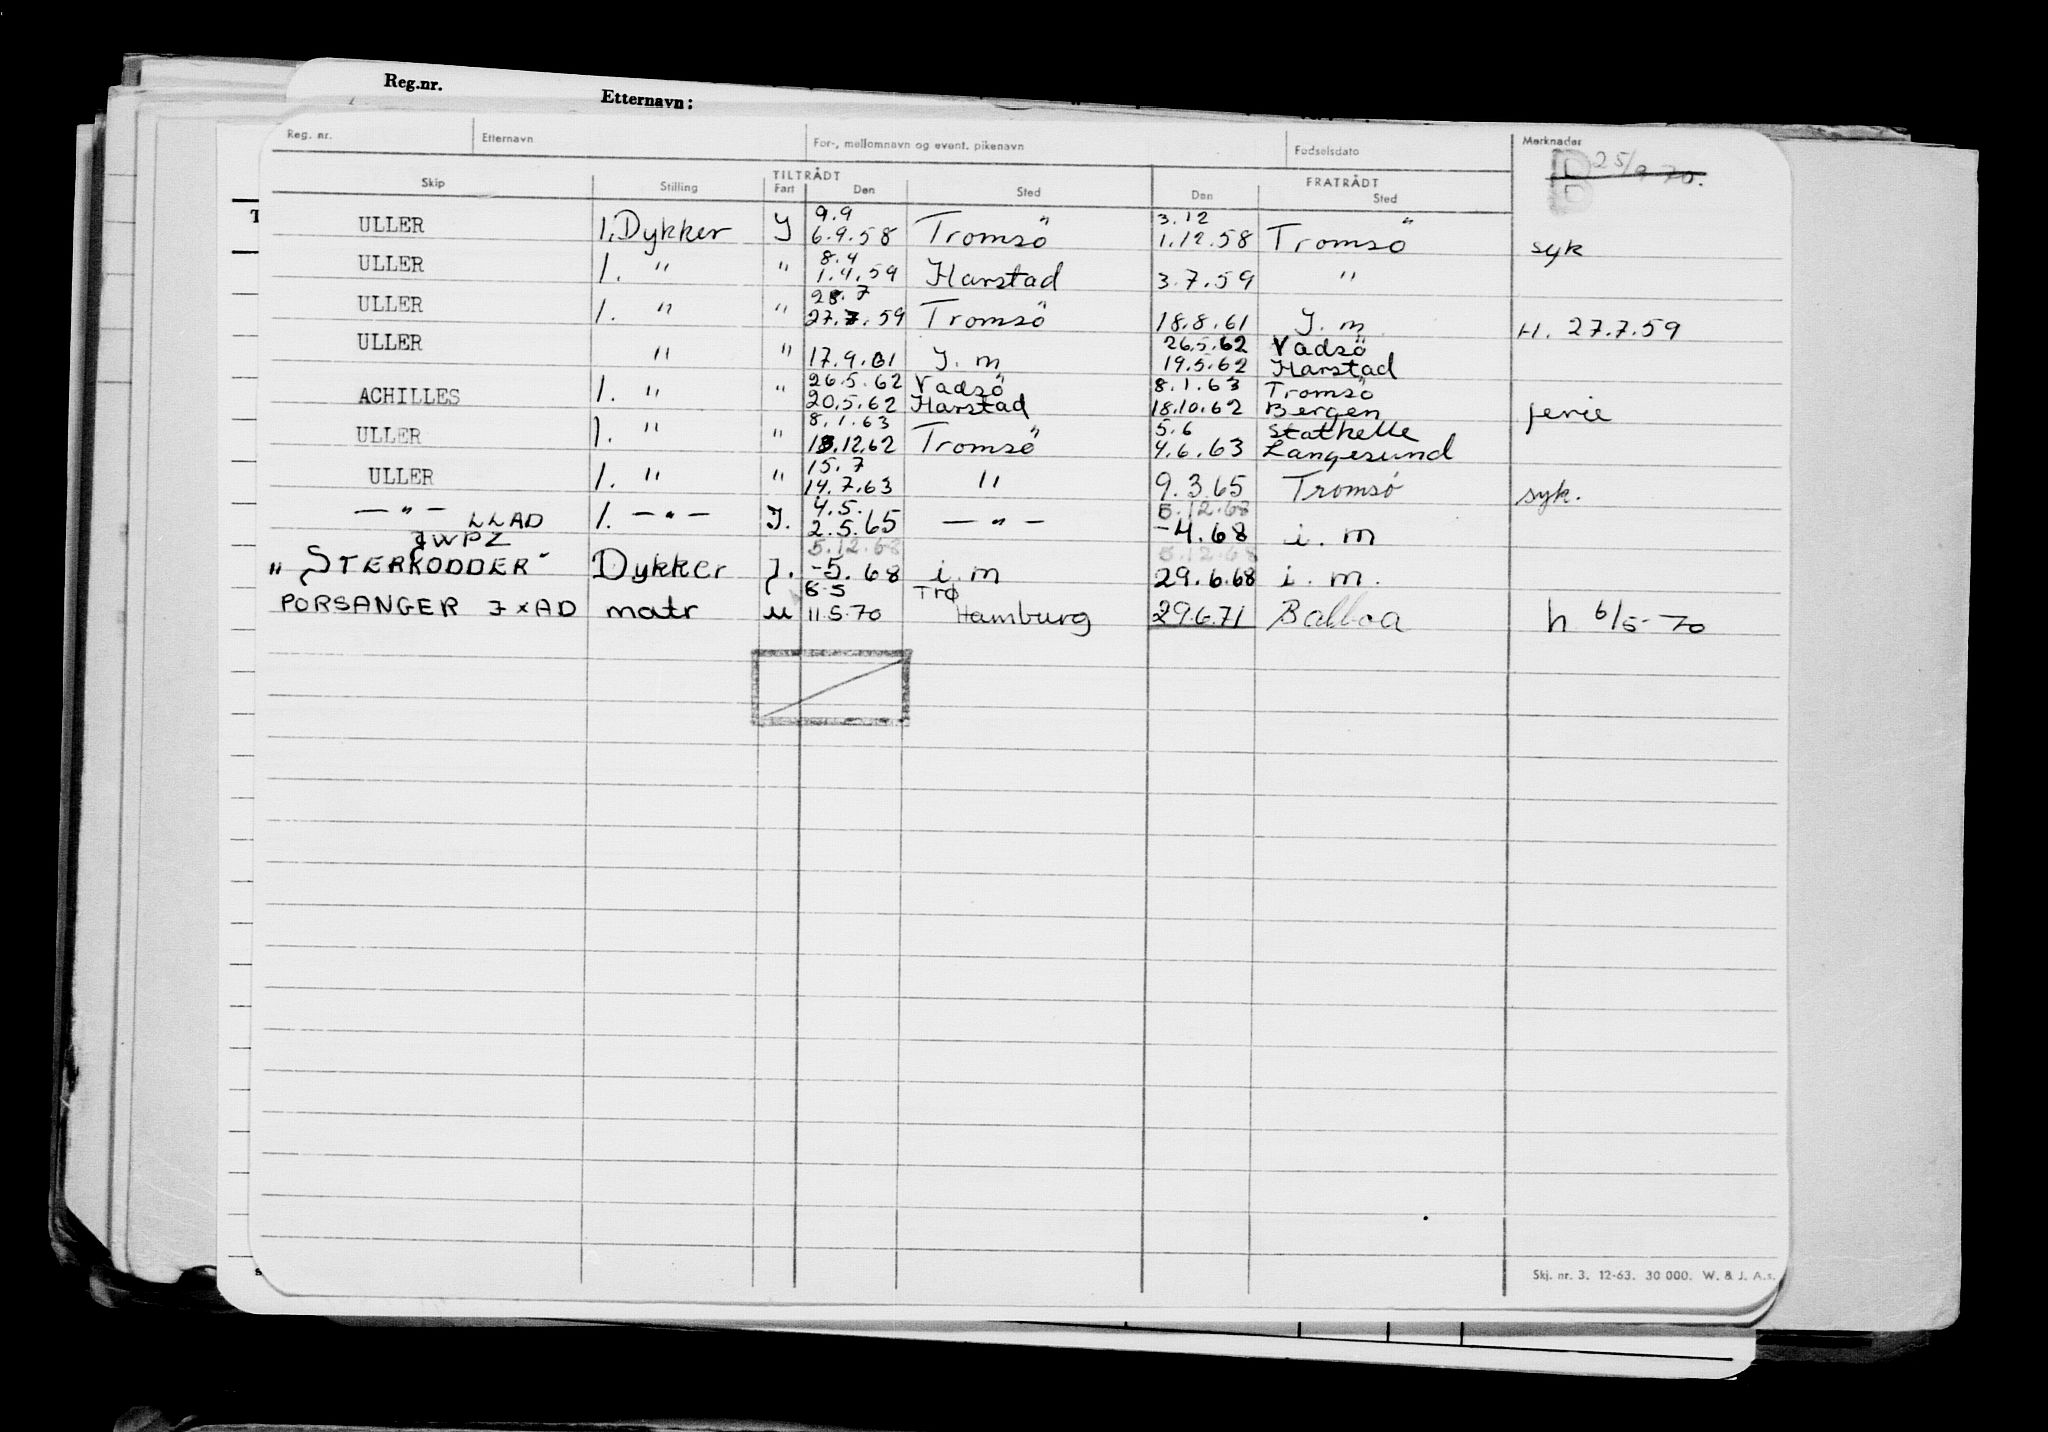 Reg.nr.
Etternavn:
Reg. nr. Etternavn For-, mellomnavn og event. pikenavn Fødselsdato Merknader
TILTRÅDT FRATRÅDT
Skip Stilling Fart Den Sted Den Sted
9.9 3.12
ULLER 1. Dykker J 6.9.58 Tromsö 1.12.58 Tromsö syk
8.4
ULLER 1. " " 1.4.59 Harstad 3.7.59 "
28.7
ULLER 1. " " 27.7.59 Tromsö 18.8.61 J. m H. 27.7.59
26.5.62 Vadsö
ULLER " " 17.9.61 J. m 19.5.62 Harstad
26.5.62 Vadsö 8.1.63 Tromsö
ACHILLES 1. " " 20.5.62 Harstad 18.10.62 Bergen ferie
8.1.63 5.6 Stathelle
ULLER 1. " " 18.12.62 Tromsö 4.6.63 Langesund
15.7
ULLER 1. " " 14.7.63 " 9.3.65 Tromsö syk.
4.5. 5.12.68
— " — LLAD 1. — " — J. 2.5.65 — " — -4.68 i. m
JWPZ 5.12.68 5.12.68
"STERKODDER" Dykker J. -5.68 i. m 29.6.68 i. m.
6-5 Trø
PORSANGER J x AD matr u 11.5.70 Hamburg 29.6.71 Balboa h 6/5-70
Skj. nr. 3. 12-63. 30 000. W. & J. A.s.